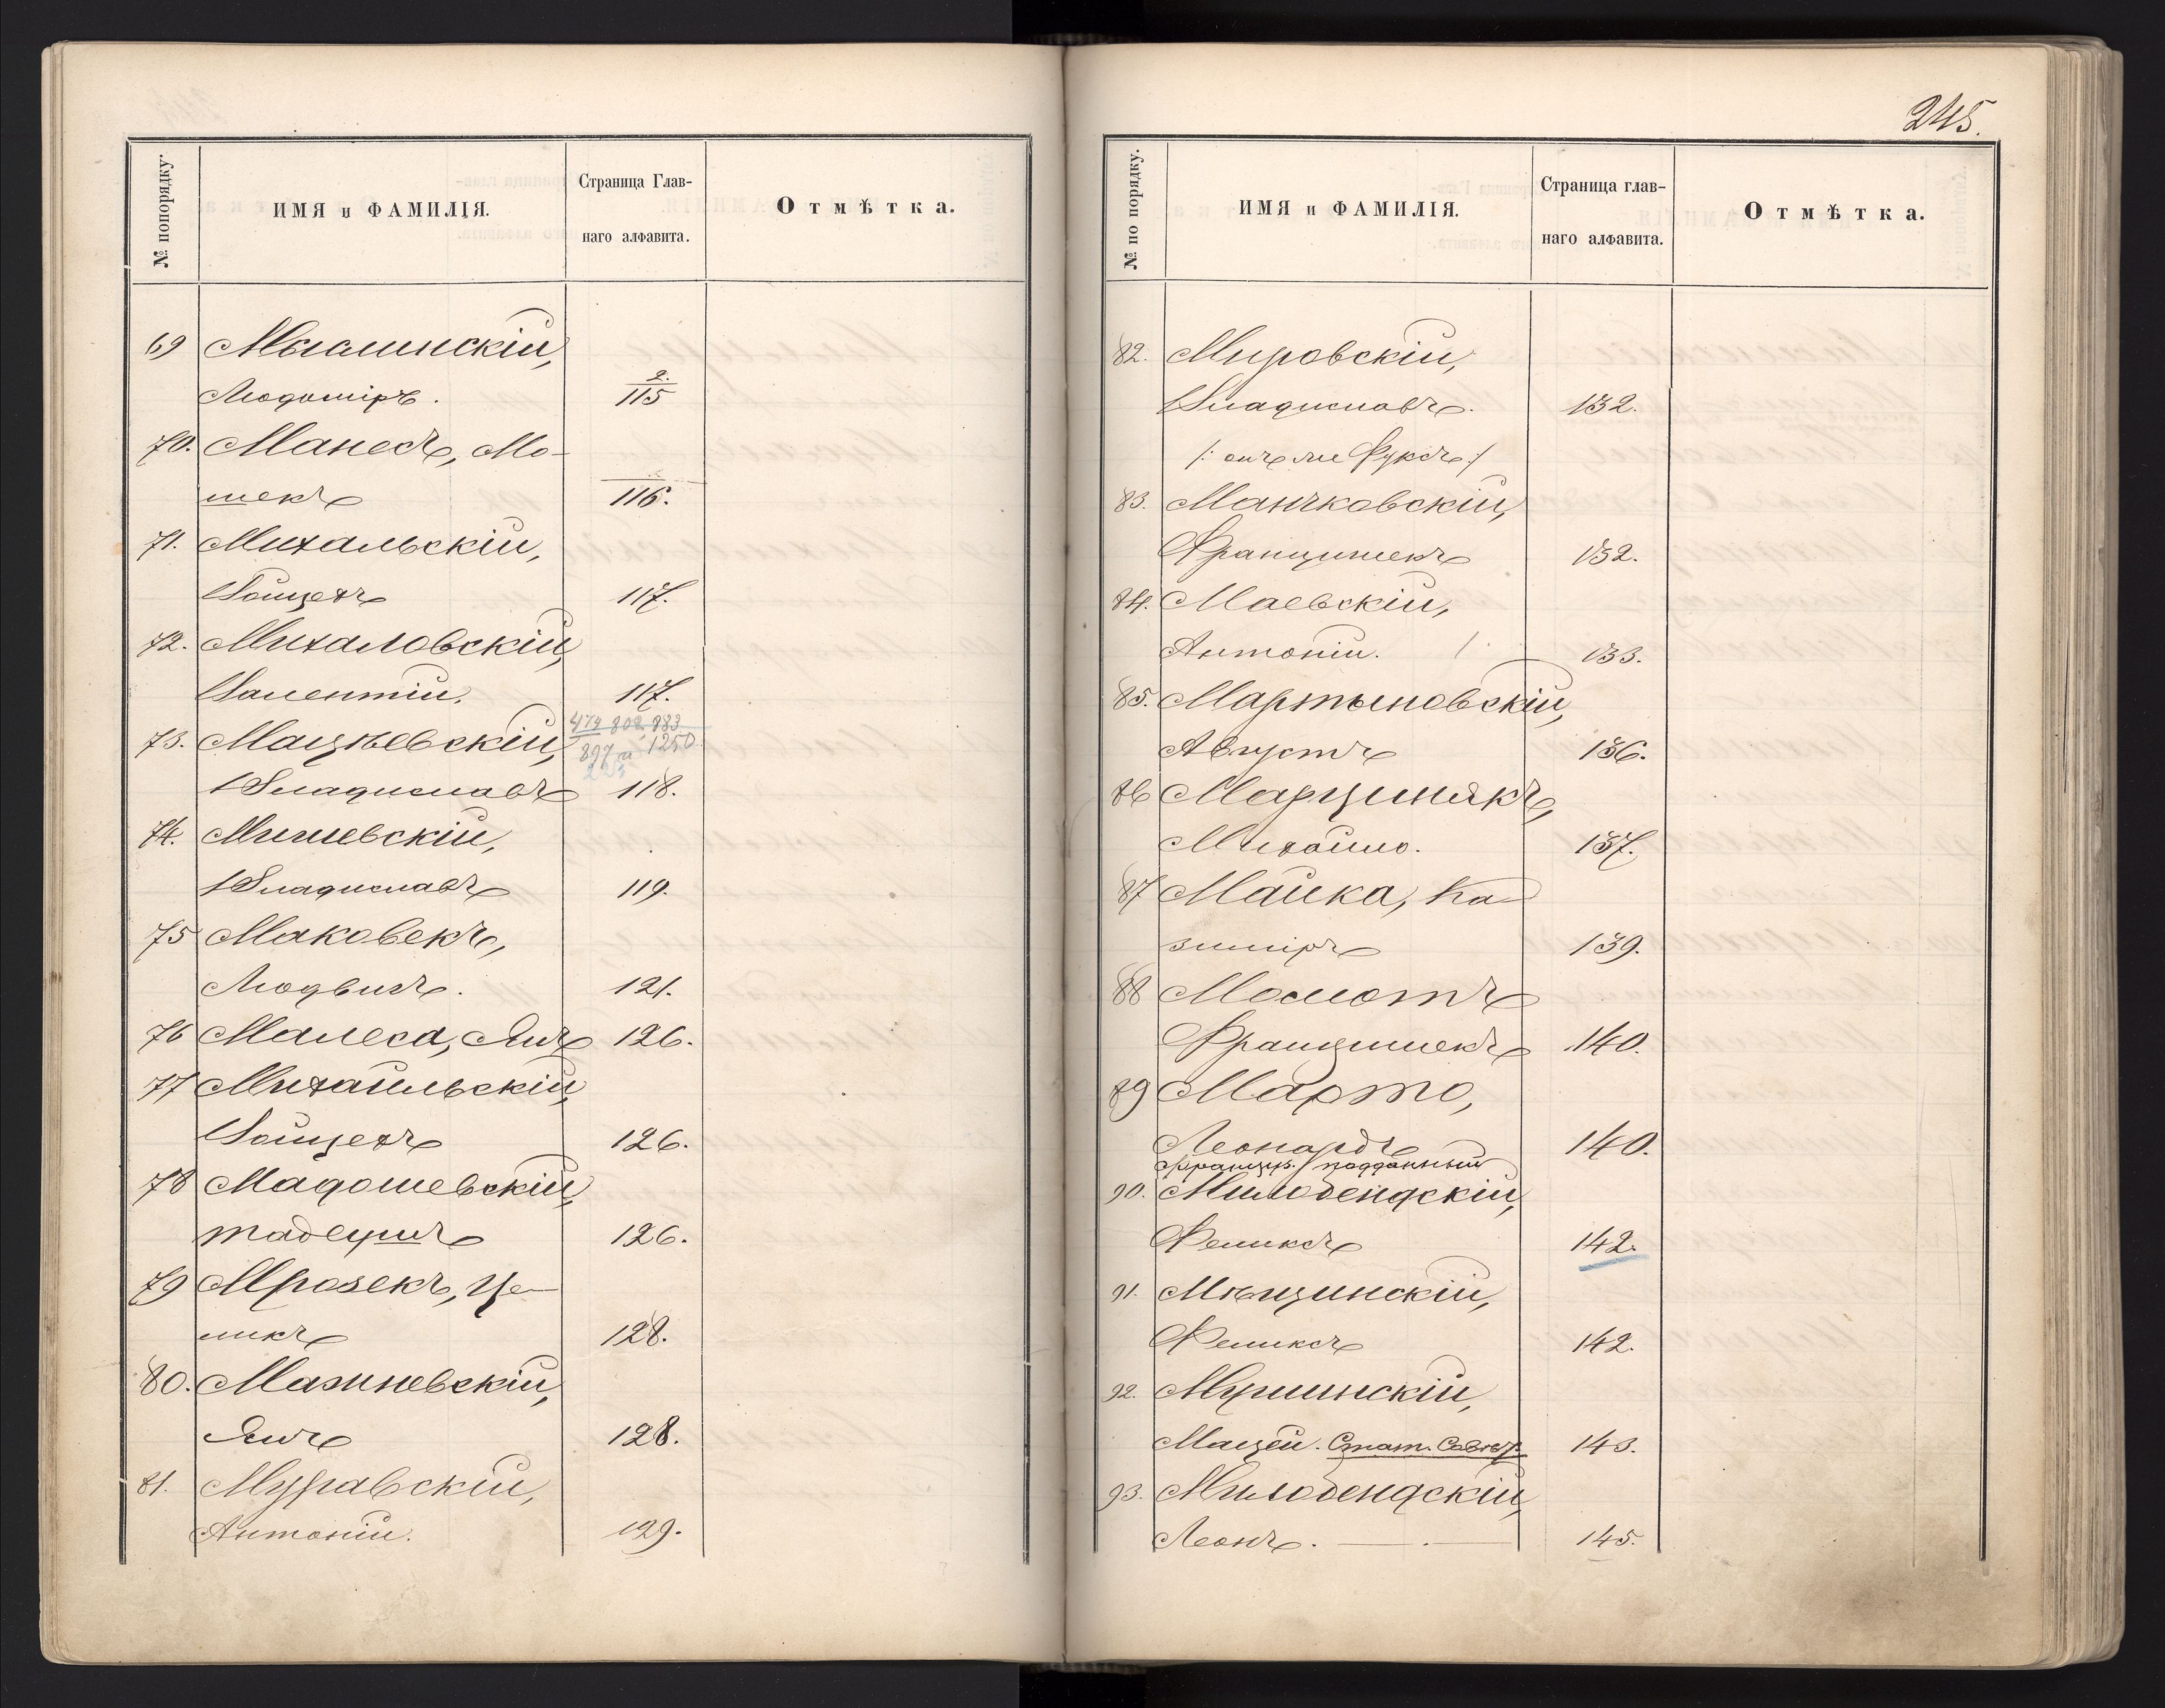 245.
№ попорядку.
ИМЯ и ФАМИЛІЯ.
Страница Глав-
наго алфавита.
Отмѣтка.
69 Мысминскій,
Людоміръ. 2. 115
70. Манесъ, Мо-
шекъ 116.
71. Михальскій,
Войцехъ 117.
72. Михаловскій,
Валентій. 117.
474 802 883
73. Мацѣевскій, 897 и 1250
Владиславъ 118.
74. Мишевскій,
Владиславъ 119.
75 Маковекъ,
Людвигъ. 121.
76 Малеса, Янъ 126.
77 Михайльскій,
Войцехъ 126.
78 Мадошевскій,
Тадеушъ 126.
79 Мрозекъ, Це-
ликъ 128.
80. Мазиневскій,
Янъ 128.
81. Муравскій,
Антоній. 129.
№ по порядку.
ИМЯ и ФАМИЛІЯ.
Страница глав-
наго алфавита.
Отмѣтка.
82. Мировскій,
Владиславъ. 132.
/: онъ же Фуксъ :/
83. Манчковскій,
Францишекъ 132.
84. Маевскій,
Антоній. 133.
85. Мартыновскій,
Августъ 136.
86 Марцинякъ,
Михайло. 137.
87 Майка, Ка-
зиміръ 139.
88 Момотъ
Францишекъ 140.
89 Марто,
Леонардъ 140.
француз. подданный
90. Милобендскій,
Феликсъ 142.
91. Мѣщинскій,
Феликсъ 142.
92. Мушинскій,
Мацей. Стат. Совѣт. 143.
93. Милобендскій,
Леонъ. 145.